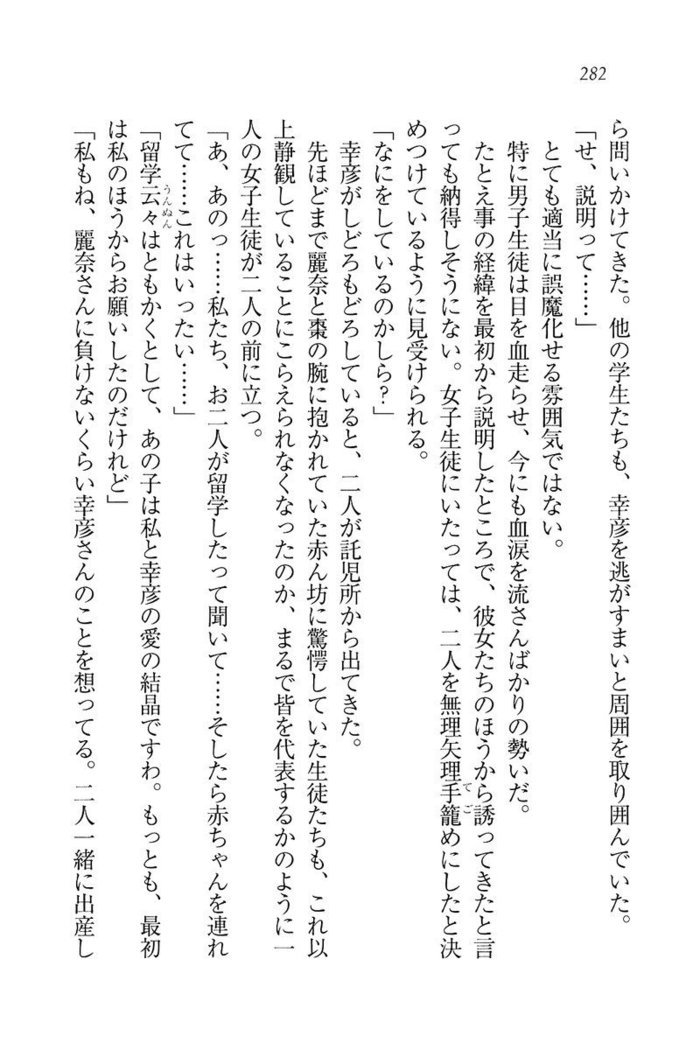 282
ら問いかけてきた。他の学生たちも、幸彦を逃がすまいと周囲を取り囲んでいた。
「せ、説明って……」
とても適当に誤魔化せる雰囲気ではない。
特に男子生徒は目を血走らせ、今にも血涙を流さんばかりの勢いだ。
たとえ事の経緯を最初から説明したところで、彼女たちのほうから誘ってきたと言
っても納得しそうにない。女子生徒にいたっては、二人を無理矢理手籠めにしたと決
てご
めつけているように見受けられる。
「なにをしているのかしら？」
幸彦がしどろもどろしていると、二人が託児所から出てきた。
先ほどまで麗奈と棗の腕に抱かれていた赤ん坊に驚愕していた生徒たちも、これ以
上静観していることにこらえられなくなったのか、まるで皆を代表するかのように一
人の女子生徒が二人の前に立つ。
「あ、あのっ……私たち、お二人が留学したって聞いて……そしたら赤ちゃんを連れ
てて……これはいったい……」
「留学云々はともかくとして、あの子は私と幸彦の愛の結晶ですわ。もっとも、最初
うんぬん
は私のほうからお願いしたのだけれど」
「私もね、麗奈さんに負けないくらい幸彦さんのことを想ってる。二人一緒に出産し